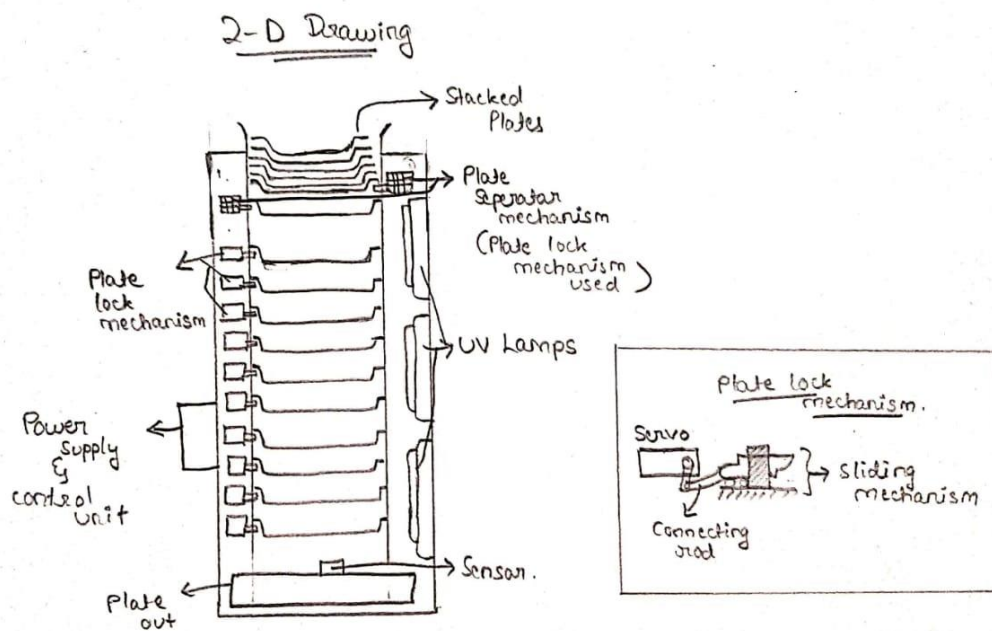 2-D Drawing
Stacked
Plates
Plate
Seperator
mechanism
(Plate lock
mechanism
used)
Plate
lock
mechanism
UV Lamps
Power
supply
&
control
unit
Sensor.
Plate
out
Plate lock
mechanism.
Servo
Sliding
mechanism
Connecting
rod